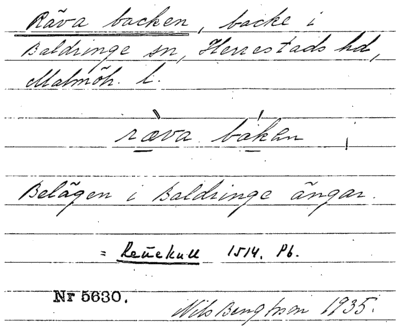 Räva backen, backe i
Baldringe sn, Herrestads hd,
Malmöh. l.
ræva bakan
Belägen i Baldringe ängar.
= Reückull 1514. Pb.
Nr 5630.
Nils Bengtson 1935.